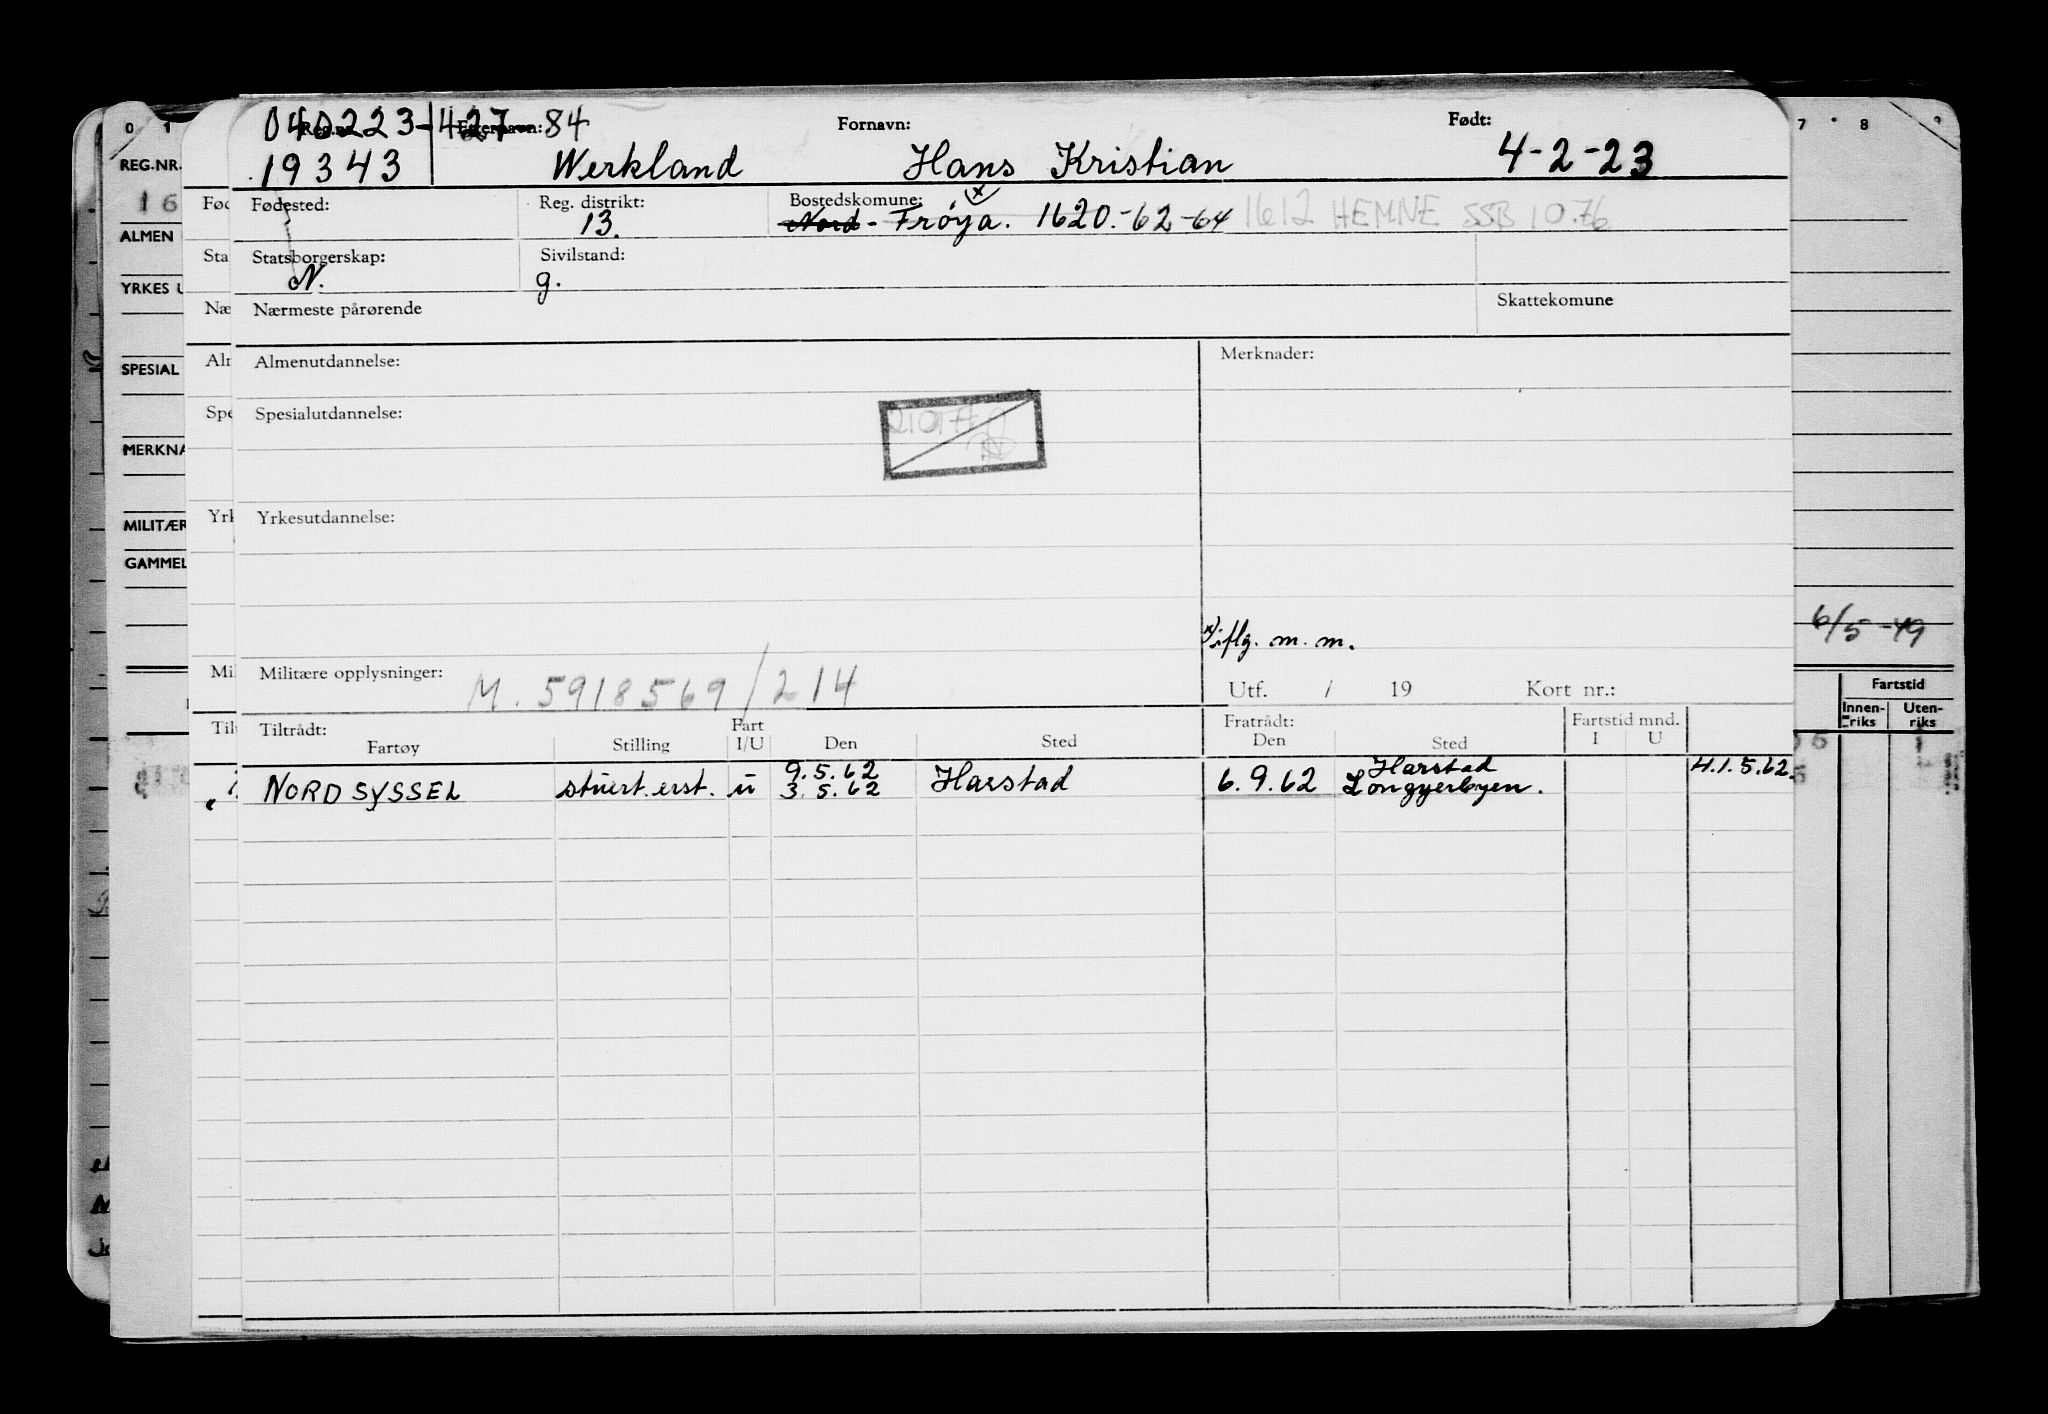 040223-42784
Reg.nr. Etternavn: Fornavn: Født:
19343 Werkland Hans Kristian 4-2-23
Fødested: Reg. distrikt: Bostedskomune: x
13. Nord-Frøya. 1620.-62-64 1612 HEMNE SSB 10.76
Statsborgerskap: Sivilstand:
N. g.
Nærmeste pårørende Skattekomune
Almenutdannelse: Merknader:
Spesialutdannelse:
Yrkesutdannelse:
x) iflg. m. m.
Militære opplysninger: M. 5918569/214 Utf. / 19 Kort nr.:
Tiltrådt: Fart Fratrådt: Fartstid mnd.
Fartøy Stilling I/U Den Sted Den Sted I U
9.5.62 Harstad 4.1.5.62.
NORDSYSSEL stuert.erst. u 3.5.62 Harstad 6.9.62 Longyerbyen.
0 1
REG.NR.
16
ALMEN
YRKES U
SPESIAL
MERKNA
MILITÆR
GAMMEL
Fød
Sta
Næ
Alm
Spe
Yrk
Mil
Tilt
7 8 9
6/5-49
Fartstid
Innenriks Utenriks